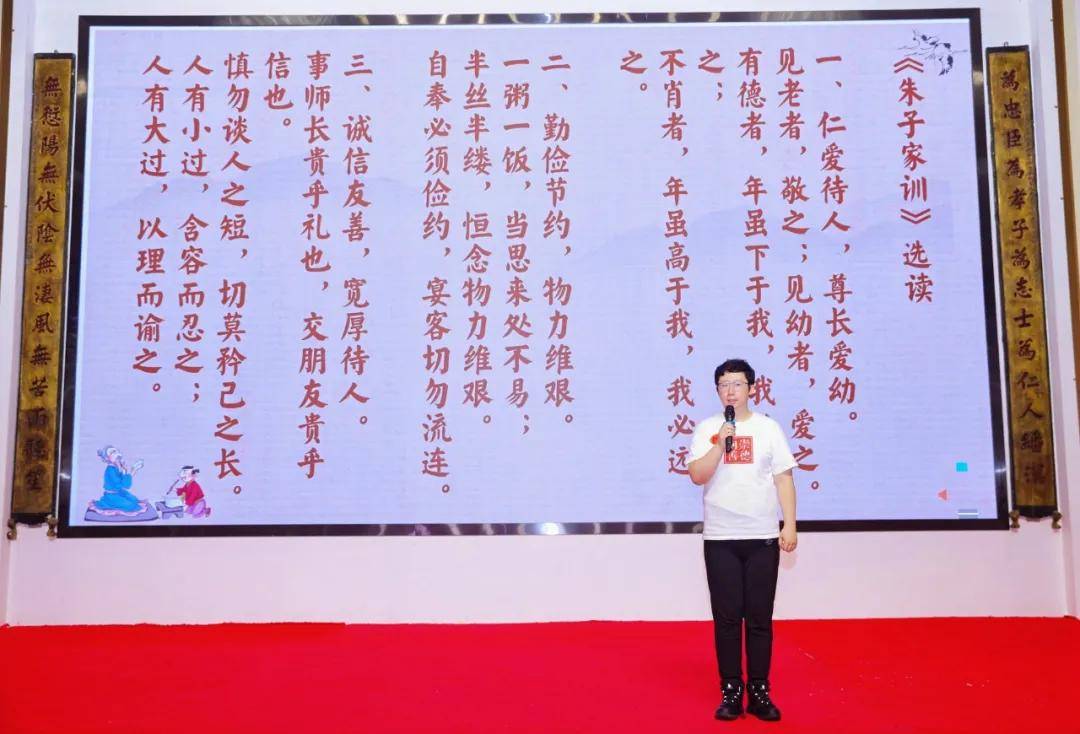 為忠臣為孝子為志士為仁人
《朱子家训》选读
一、仁爱待人，尊长爱幼。
见老者，敬之；见幼者，爱之。
有德者，年虽下于我，我
之；
不肖者，年虽高于我，我必远
之。
二、勤俭节约，物力维艰。
一粥一饭，当思来处不易；
半丝半缕，恒念物力维艰。
自奉必须俭约，宴客切勿流连。
三、诚信友善，宽厚待人。
事师长贵乎礼也，交朋友贵乎
信也。
慎勿谈人之短，切莫矜己之长。
人有小过，含容而忍之；
人有大过，以理而谕之。
無愆陽無伏陰無淒風無苦雨
崇德